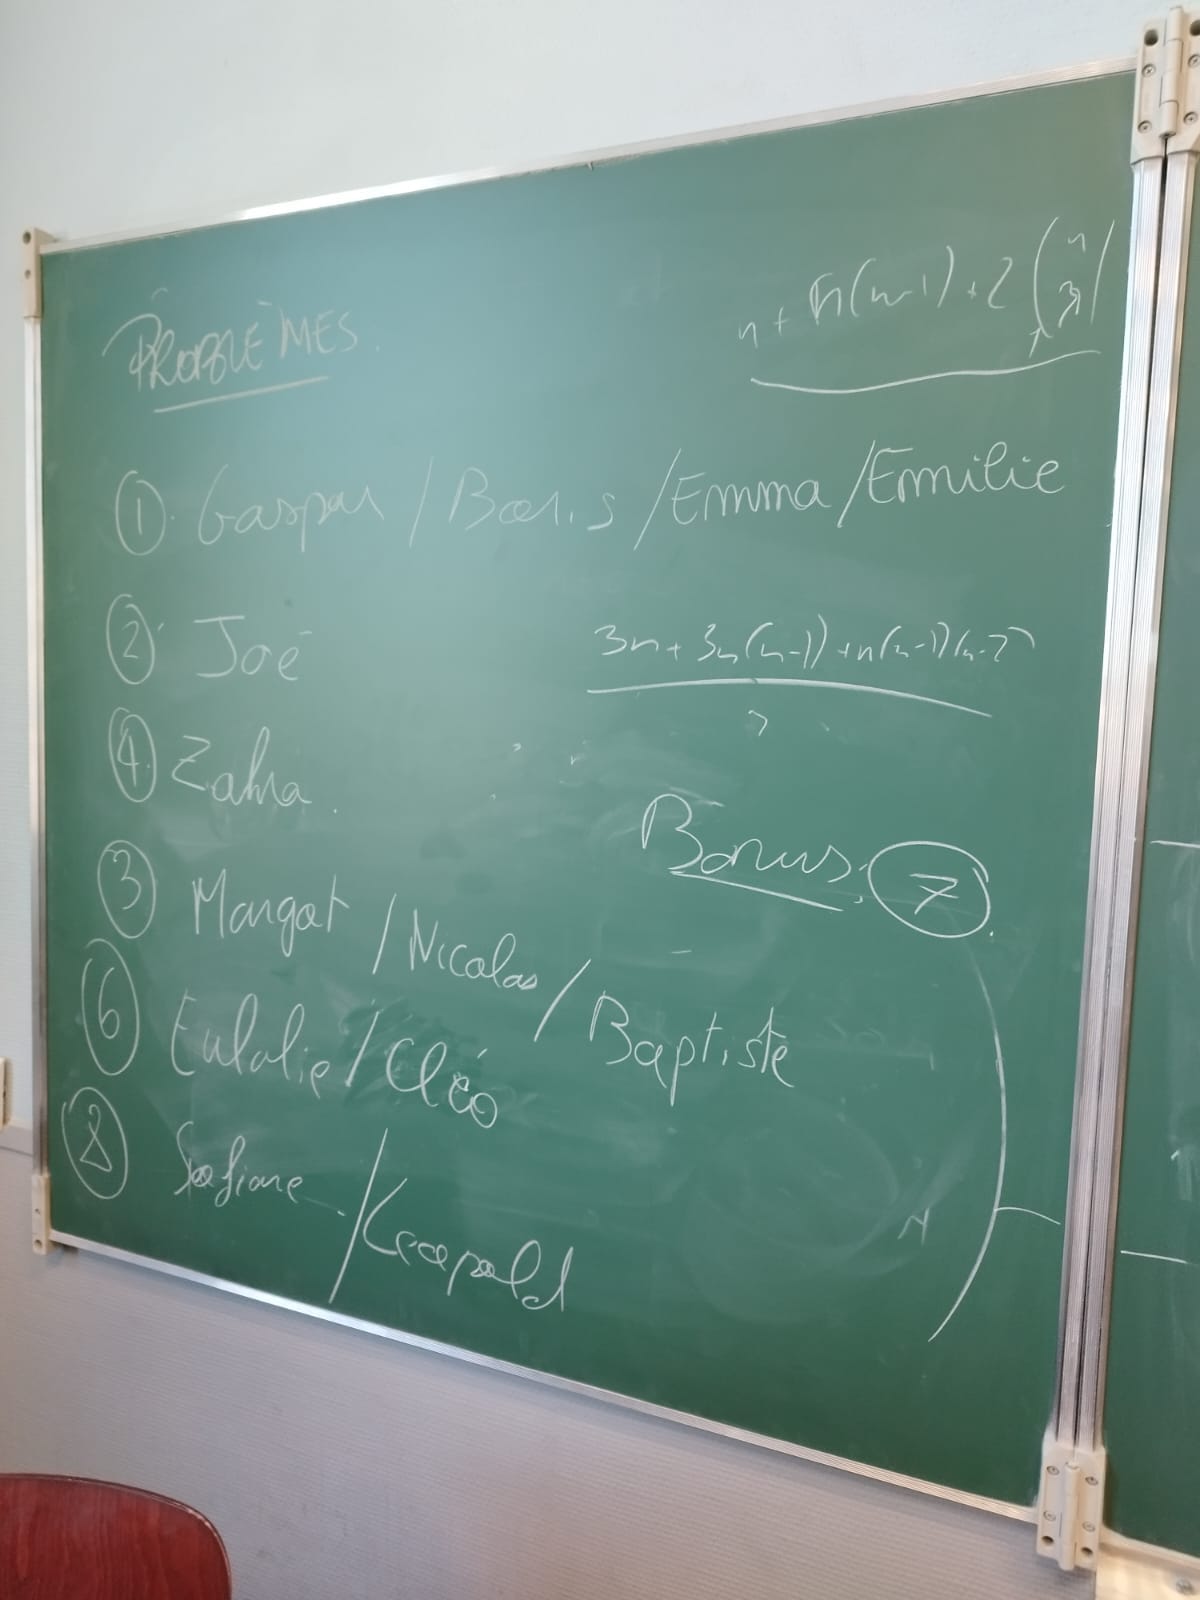 PROBLÈMES.
n + n(n-1) + 2 (n 3)
① Gaspar / Boris / Emma / Emilie
② Joé
3n + 3n(n-1) + n(n-1)(n-2)
3
④ Zahra.
Bonus: ⑦.
③ Margot / Nicolas / Baptiste
⑥ Eulalie / Cléo
⑧ Sofiane / Léopold